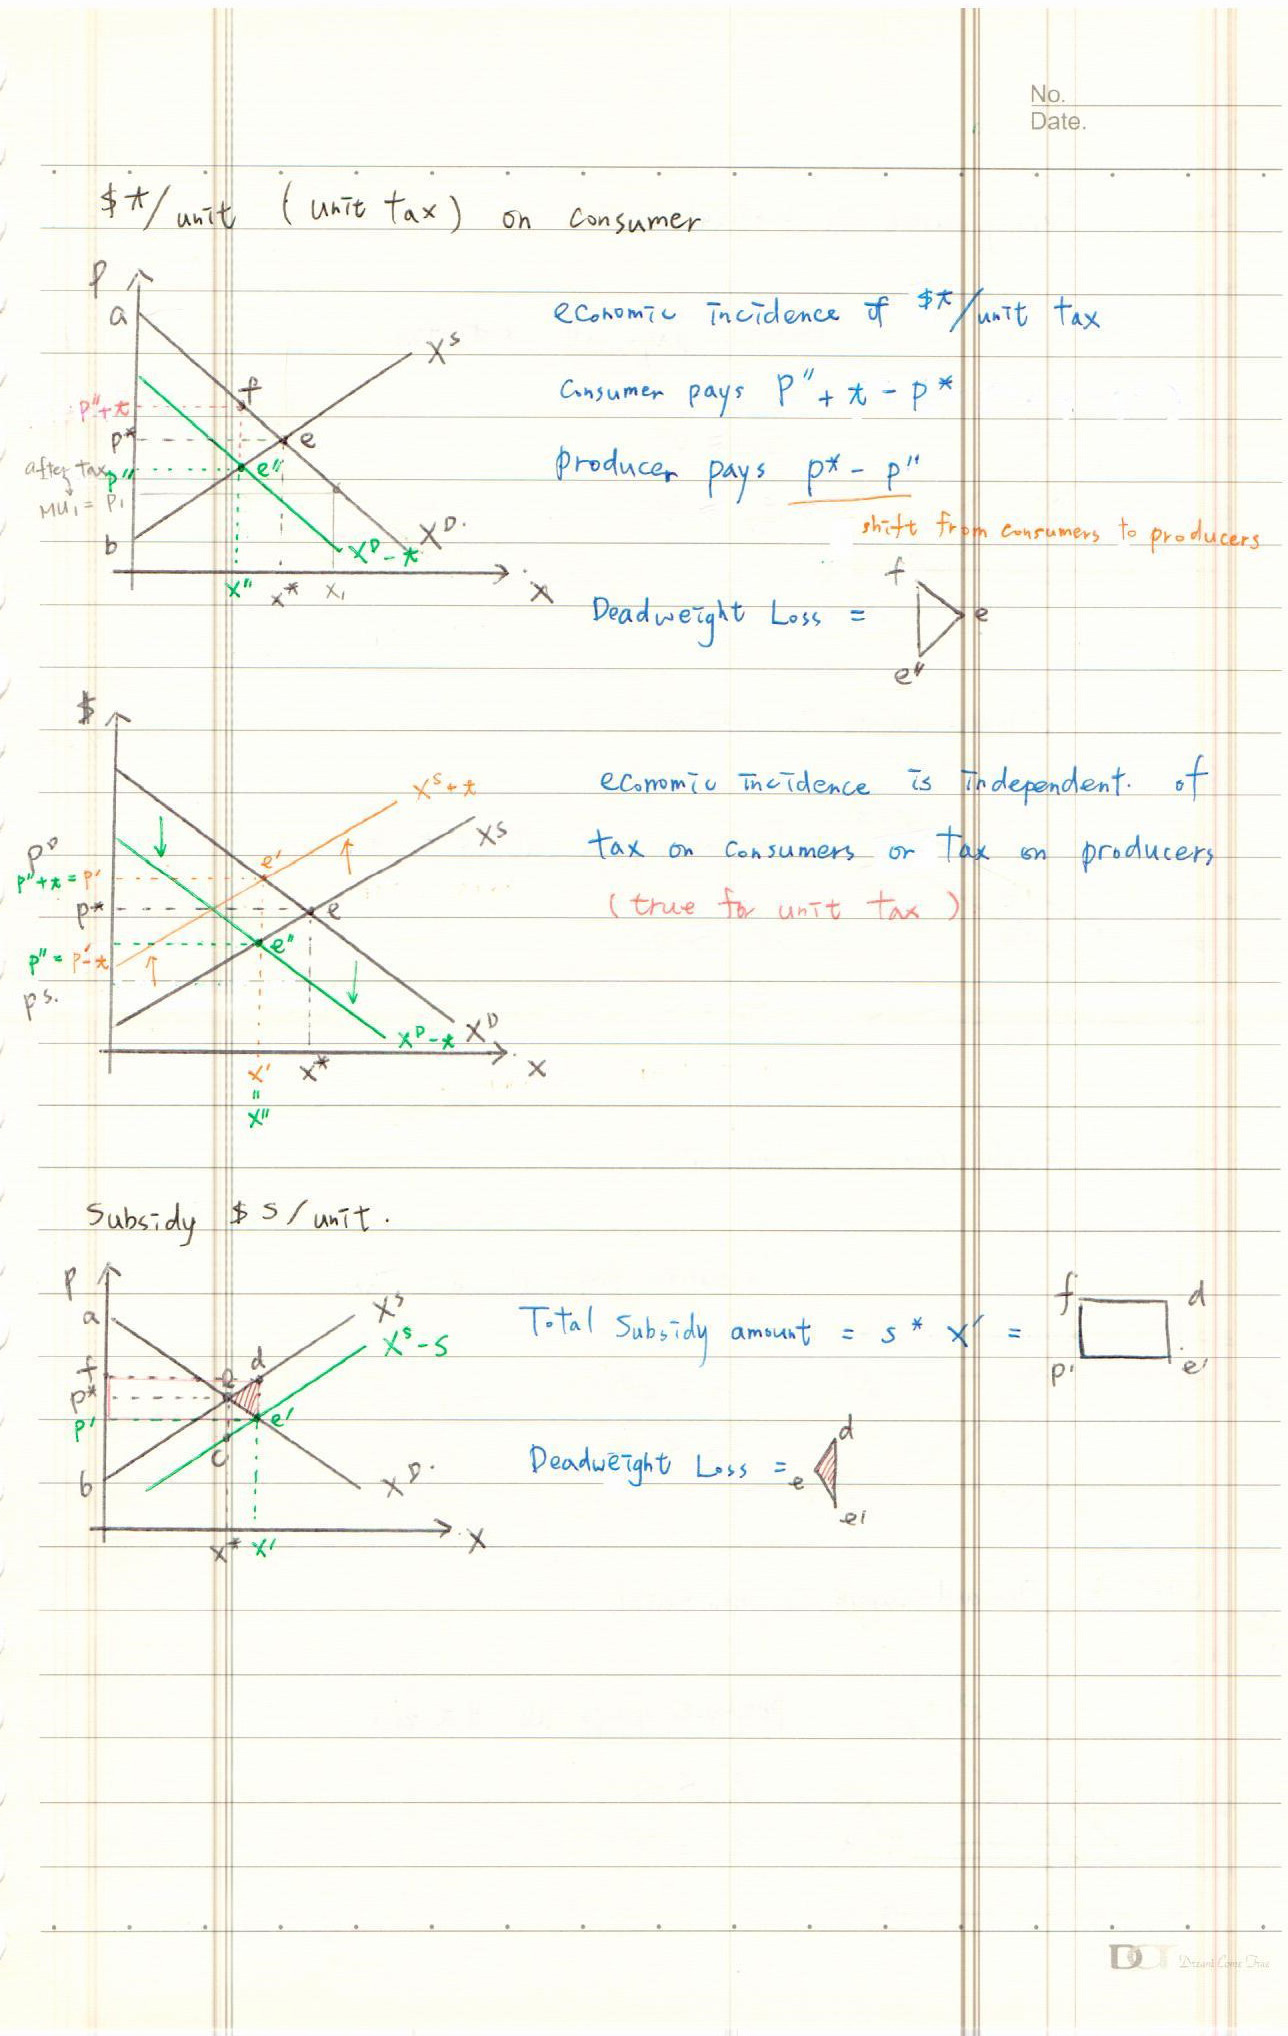 No.
Date.
$t/unit (unit tax) on consumer
P
a
f
X^S
p''+t
p*
e
after tax
p''
e''
MU₁ = P₁
b
X^D.
X^D-t
x''
x*
x₁
X
economic incidence of $t/unit tax
Consumer pays P''+ t - p*
Producer pays p* - p''
shift from consumers to producers
Deadweight Loss =
f
e
e''
$
X^S+t
X^S
P^D
e'
p''+t = p'
p*
e
p'' = p'-t
e''
P^S.
X^D-t
X^D
x'
x*
X
"
x''
economic incidence is independent. of
tax on consumers or tax on producers
(true for unit tax)
Subsidy $ S/unit.
P
a
X^S
X^S-S
f
e
d
p*
p'
e'
c
b
X^D.
x*
x'
X
Total Subsidy amount = s * x' =
f
d
p'
e'
Deadweight Loss =
d
e
e'
DCT Dream Come True